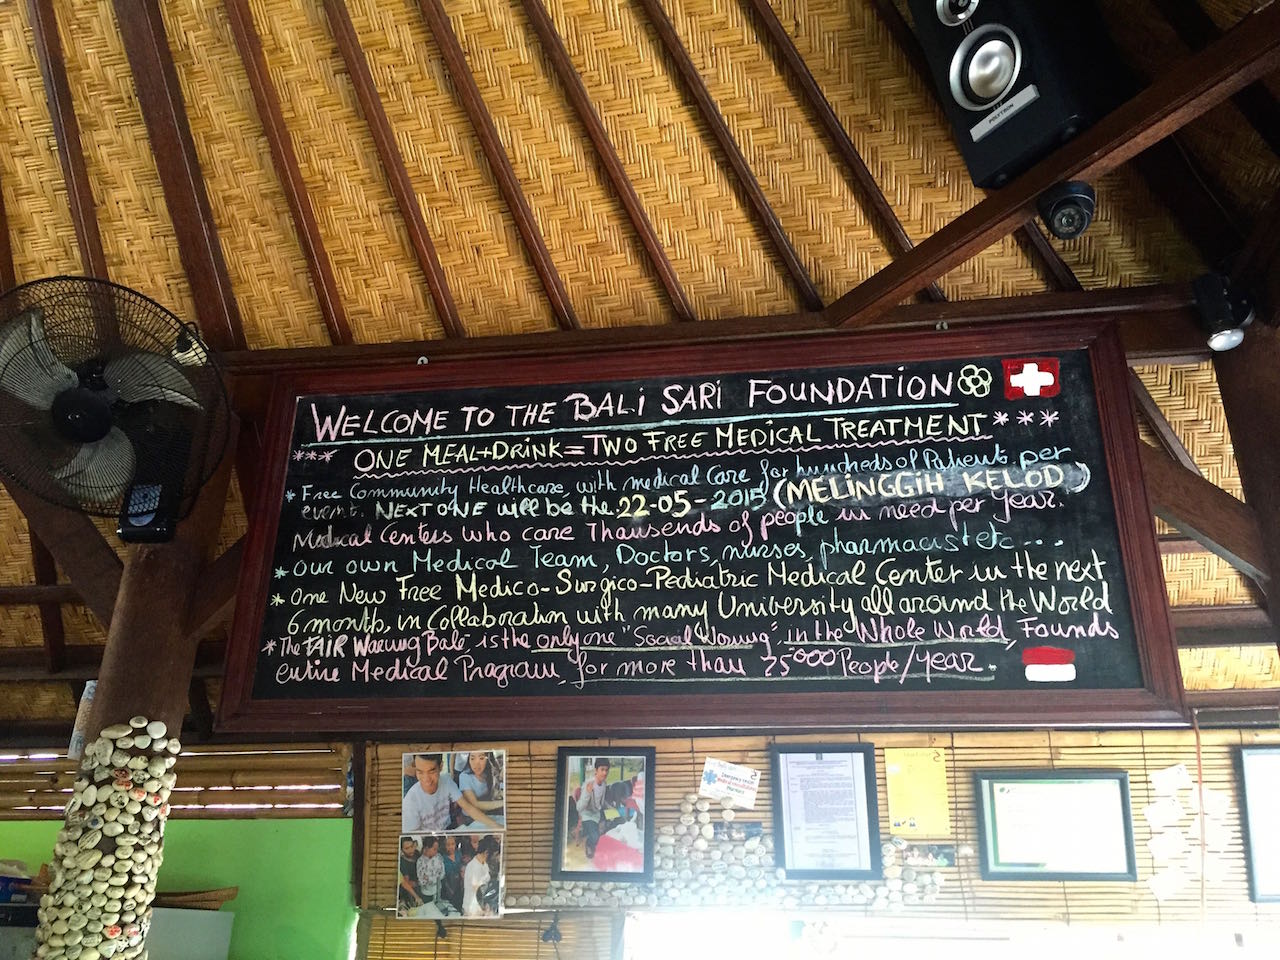 POLYTRON
WELCOME TO THE BALi SARi FOUNDATiON
*** ONE MEAL+DRiNK=TWO FREE MEDICAL TREATMENT ***
* Free Community Healthcare, with medical Care for hundreds of Patients per
event. NEXT ONE will be the 22-05-2015 (MELiNGGiH KELOD)
Medical Centers who care Thousends of people in need per year.
* our own Medical Team, Doctors, nurses, pharmacist etc ....
* One New Free Medico-Surgico-Pediatric Medical Center in the next
6 month, in Collaboration with many University all around the World
* The FAIR Warung Balé is the only one "Social Warung", in the Whole World, Founds
entire Medical Program, for more than 25°000 People/year.